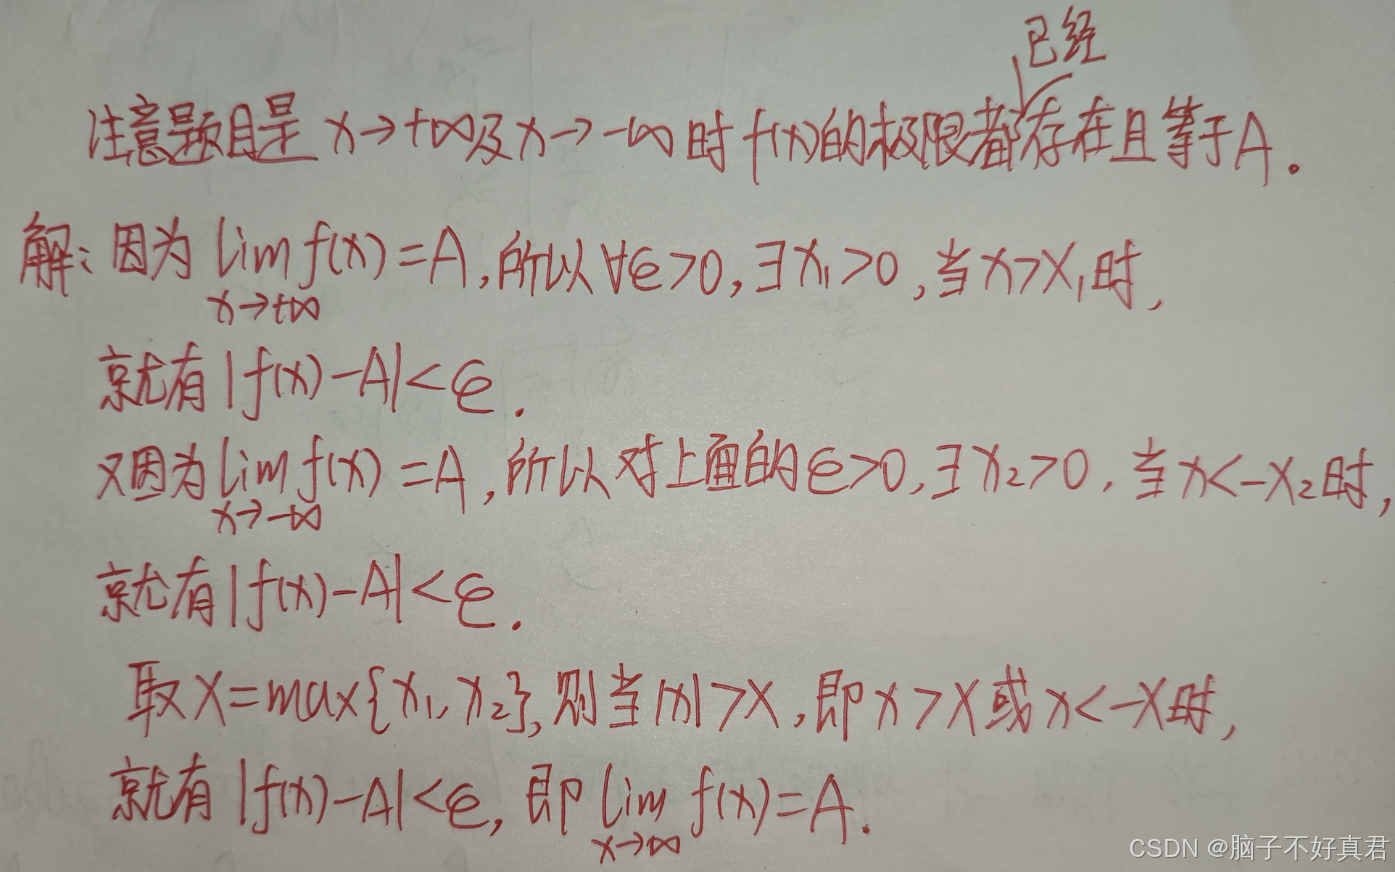 已经
注意题目是 x→+∞及x→-∞时 f(x)的极限都存在且等于A.
解: 因为 lim f(x)=A, 所以 ∀ε>0, ∃X₁>0, 当x>X₁时,
x→+∞
就有|f(x)-A|<ε.
又因为 lim f(x)=A, 所以对上面的ε>0, ∃X₂>0, 当x<-X₂时,
x→-∞
就有|f(x)-A|<ε.
取X=max{X₁, X₂}, 则当|x|>X, 即x>X或x<-X时,
就有|f(x)-A|<ε, 即 lim f(x)=A.
x→∞
CSDN @脑子不好真君